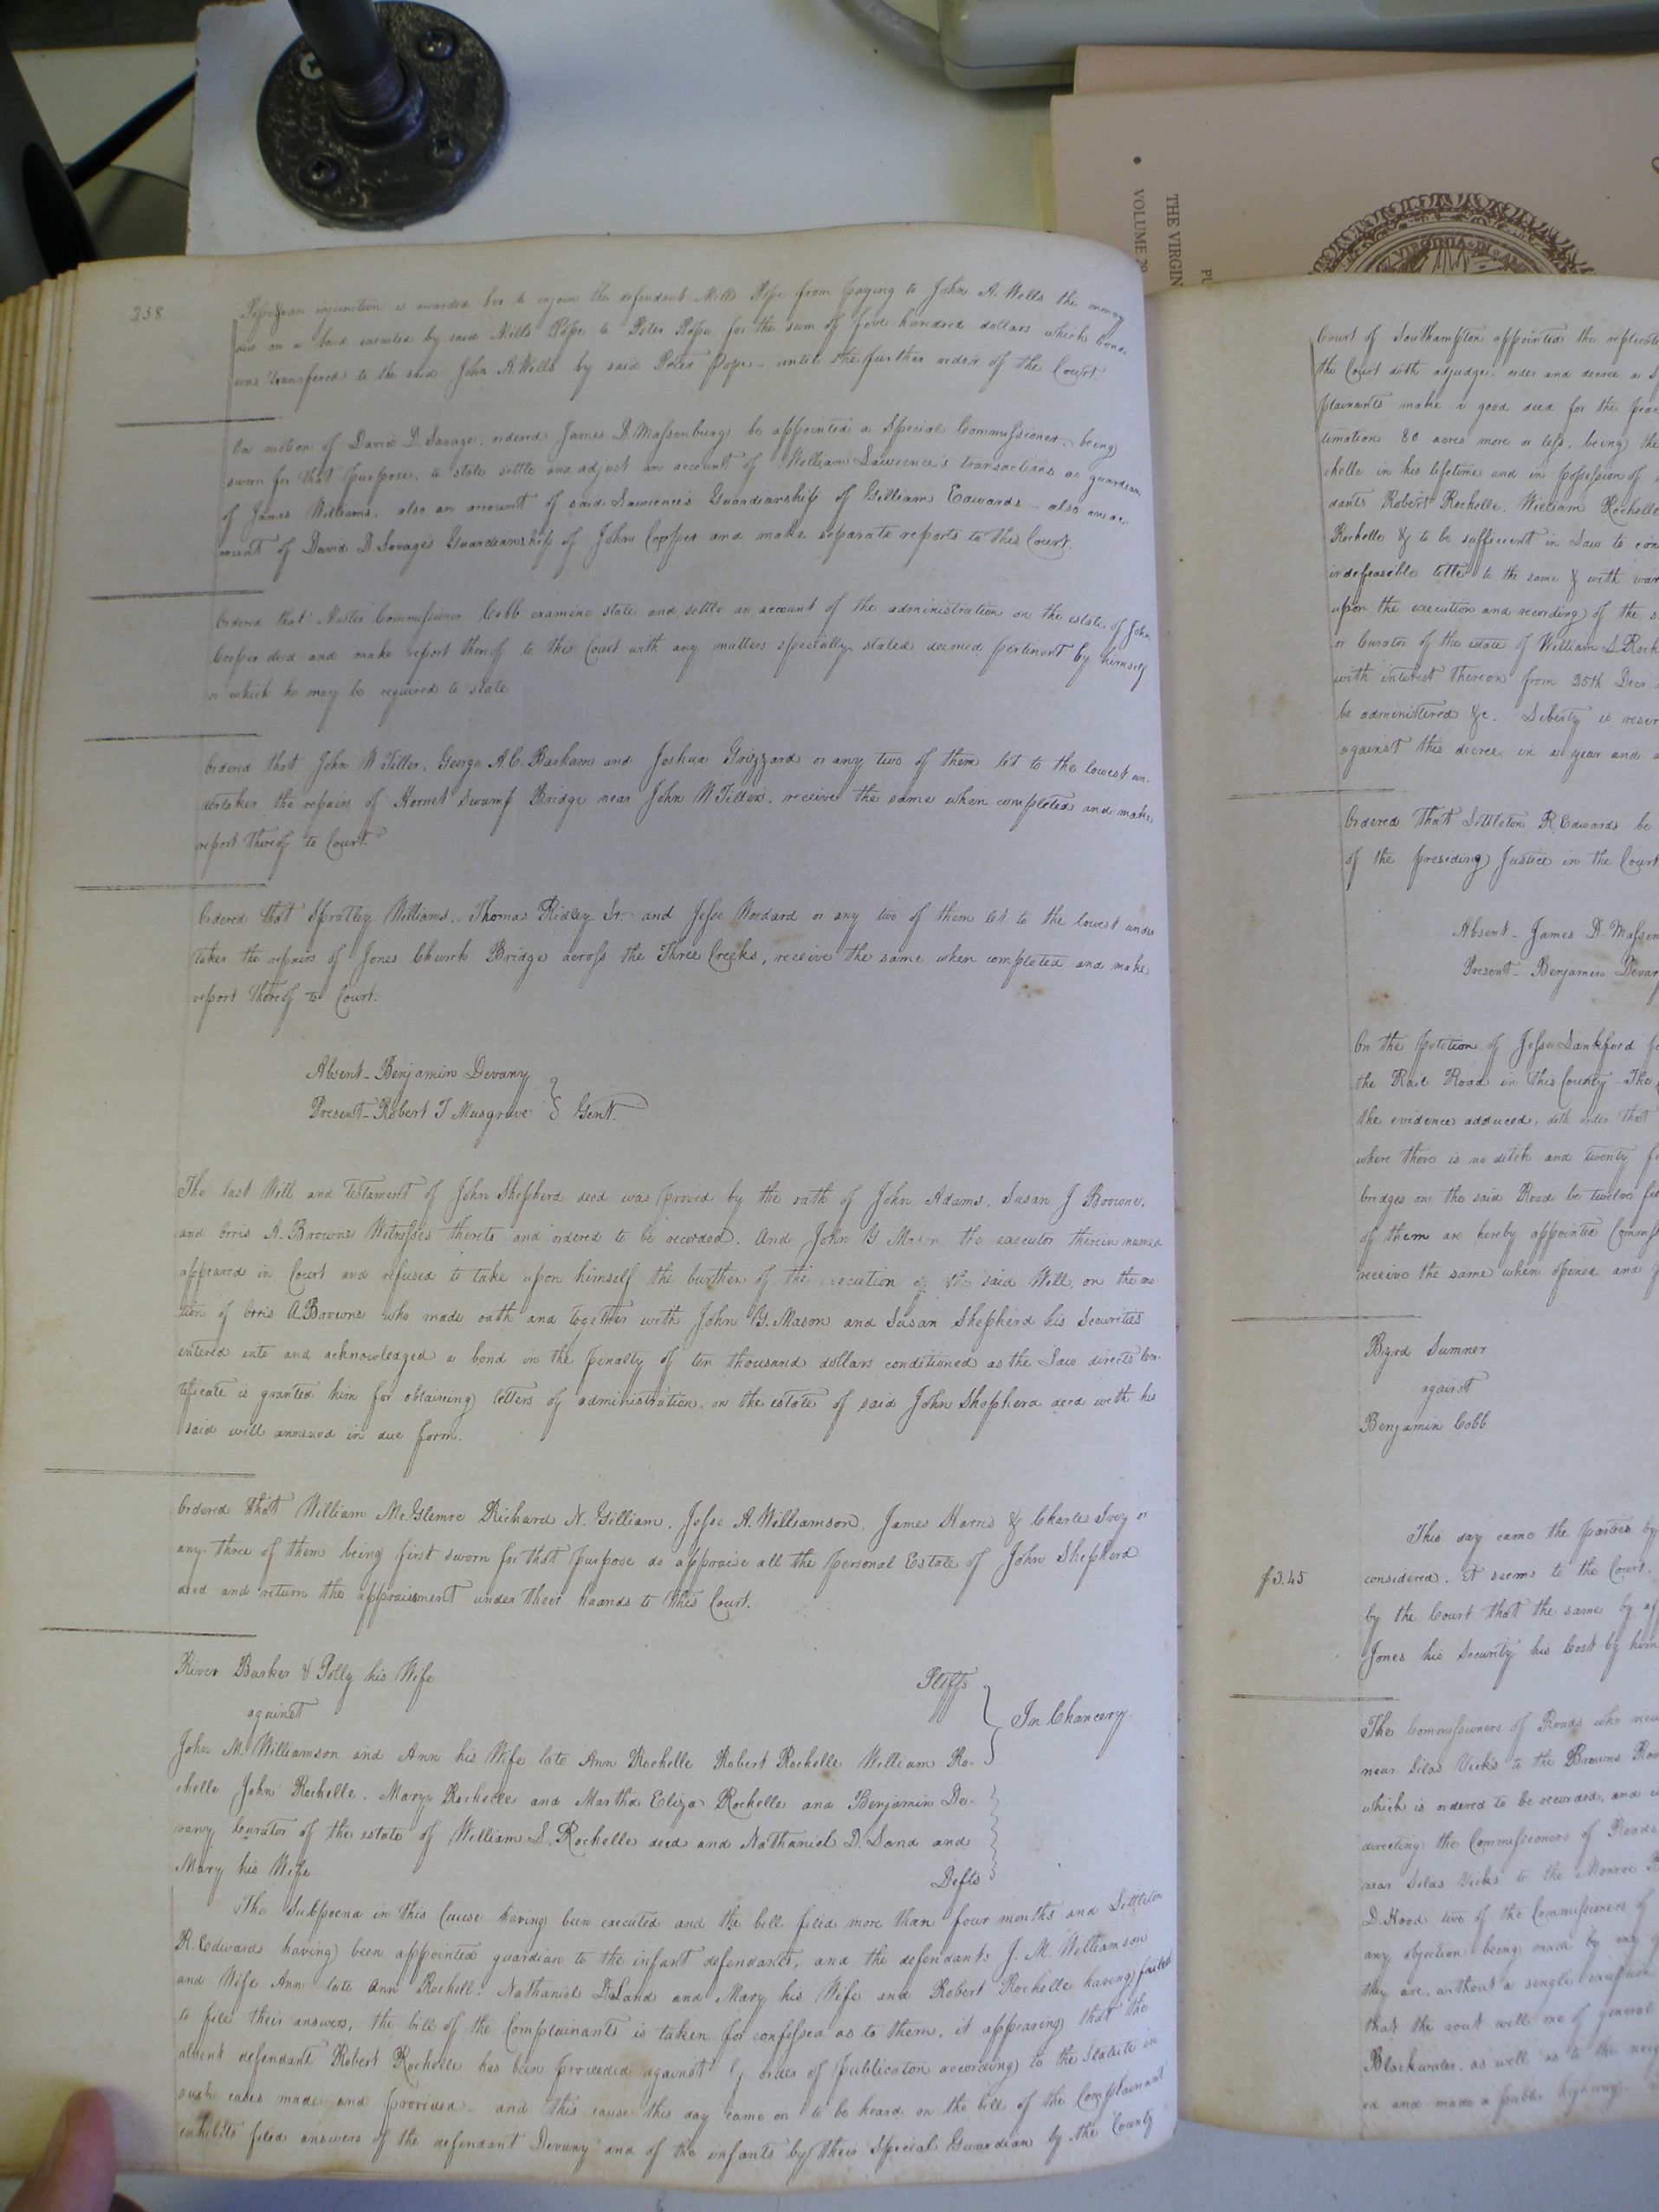 238
Popes an injunction is awarded her to enjoin the defendant Mills Pope from paying to John A. Wells the money
due on a bond executed by said Mills Pope to Peter Pope for the sum of five hundred dollars which bond
was transfered to the said John A. Wells by said Peter Pope – until the further order of the Court.
On motion of David D. Savage, ordered James D. Massenburg be appointed a Special Commissioner, being
sworn for that purpose, to state settle and adjust an account of William Lawrence's transactions as guardian
of James Williams, also an account of said Lawrence's Guardianship of Gilliam Edwards – also an ac-
count of David D Savages Guardianship of John Cooper and make separate reports to this Court.
Ordered that Master Commissioner Cobb examine state and settle an account of the administration on the estate of John
Cooper decd and make report thereof to this Court with any matters specially stated deemed pertinent by himself
or which he may be required to state
Ordered that John W Tiller, George A. C. Barham and Joshua Grizzard or any two of them let to the lowest un-
dertaker the repairs of Hornet Swamp Bridge near John W Tillers, receive the same when completed and make
report thereof to Court.
Ordered that Spratley Williams, Thomas Ridley Sr. and Jesse Woodard or any two of them let to the lowest under
taker the repairs of Jones Church Bridge across the Three Creeks, receive the same when completed and make
report thereof to Court.
Absent – Benjamin Devany
Present – Robert T Musgrave } Gent.
The last Will and Testament of John Shepherd decd was proved by the oath of John Adams, Susan J Browne,
and Orris A. Browne Witnesses thereto and ordered to be recorded. And John Y Mason the executor therein named
appeared in Court and refused to take upon himself the burthen of the execution of the said Will, on the mo-
tion of Orris A. Browne who made oath and together with John Y. Mason and Susan Shepherd his Securities
entered into and acknowledged a bond in the penalty of ten thousand dollars conditioned as the Law directs Cer-
tificate is granted him for obtaining letters of administration, on the estate of said John Shepherd decd with his
said will annexed in due form.
Ordered that William Mc.Glemre Richard N. Gilliam, Jesse A. Williamson, James Harris & Charles Ivey or
any three of them being first sworn for that purpose do appraise all the personal Estate of John Shepherd
decd and return the appraisment under their haands to this Court.
River Barker & Polly his Wife Pltffs
against } In Chancery.
John M. Williamson and Ann his Wife late Ann Rochelle Robert Rochelle William Ro-
chelle John Rochelle, Mary Rochelle and Martha Eliza Rochelle and Benjamin De-
vany Curator of the estate of William L. Rochelle decd and Nathaniel D. Land and
Mary his Wife Defts
The Subpoena in this Cause having been executed and the bill filed more than four months and Littleton
R. Edwards having been appointed guardian to the infant defendants, and the defendants J. M. Williamson
and Wife Ann late Ann Rochell. Nathaniel D. Land and Mary his Wife and Robert Rochelle having failed
to file their answers, the bill of the Complainants is taken for confessed as to them, it appearing that the
absent defendant Robert Rochelle has been proceeded against by order of publication according to the Statute in
such cases made and provided – and this cause this day came on to be heard on the bill of the Complainant
exhibits filed answers of the defendant Devany and of the infants by their special Guardian by the County
THE VIRGIN
VOLUME 79
VIRGINIA
Court of Southampton appointed the replicati
the Court doth adjudge, order and decree a
plainants make a good deed for the
timation 80 acres more or less, being the
chelle in his lifetime and in possession of
dants Robert Rochelle, William Rochelle
Rochelle & to be sufficient in Law to con
indefeasible title to the same & with war
upon the execution and recording of the
or Curator of the estate of William L. Roch
with interest thereon from 25th Decr
be administered &c. Liberty is reser
against this decree in a year and a
Ordered that Littleton R Edwards be
of the presiding Justice in the Court
Absent – James D. Massen
Present – Benjamin Devan
On the petition of Jesse Lankford
the Rail Road in this County – The
the evidence adduced, doth order that
where there is no ditch and twenty
bridges on the said Road be twelve fee
of them are hereby appointed Commiss
receive the same when opened and
Byrd Sumner
against
Benjamin Cobb
This day came the parties by
$3.45
considered. It seems to the Court,
by the Court that the same by
Jones his Security his Cost by him
The Commissioners of Roads who view
near Silas Vicks to the Browns Roa
which is ordered to be recorded, and
directing the Commissioners of Roads
near Silas Vicks to the Monroe
D. Hood two of the Commissioners of
any objection being made by any
they are, without a single exception
that the rout will one of general
Blackwater, as well as to the neig
ed and made a public highway.